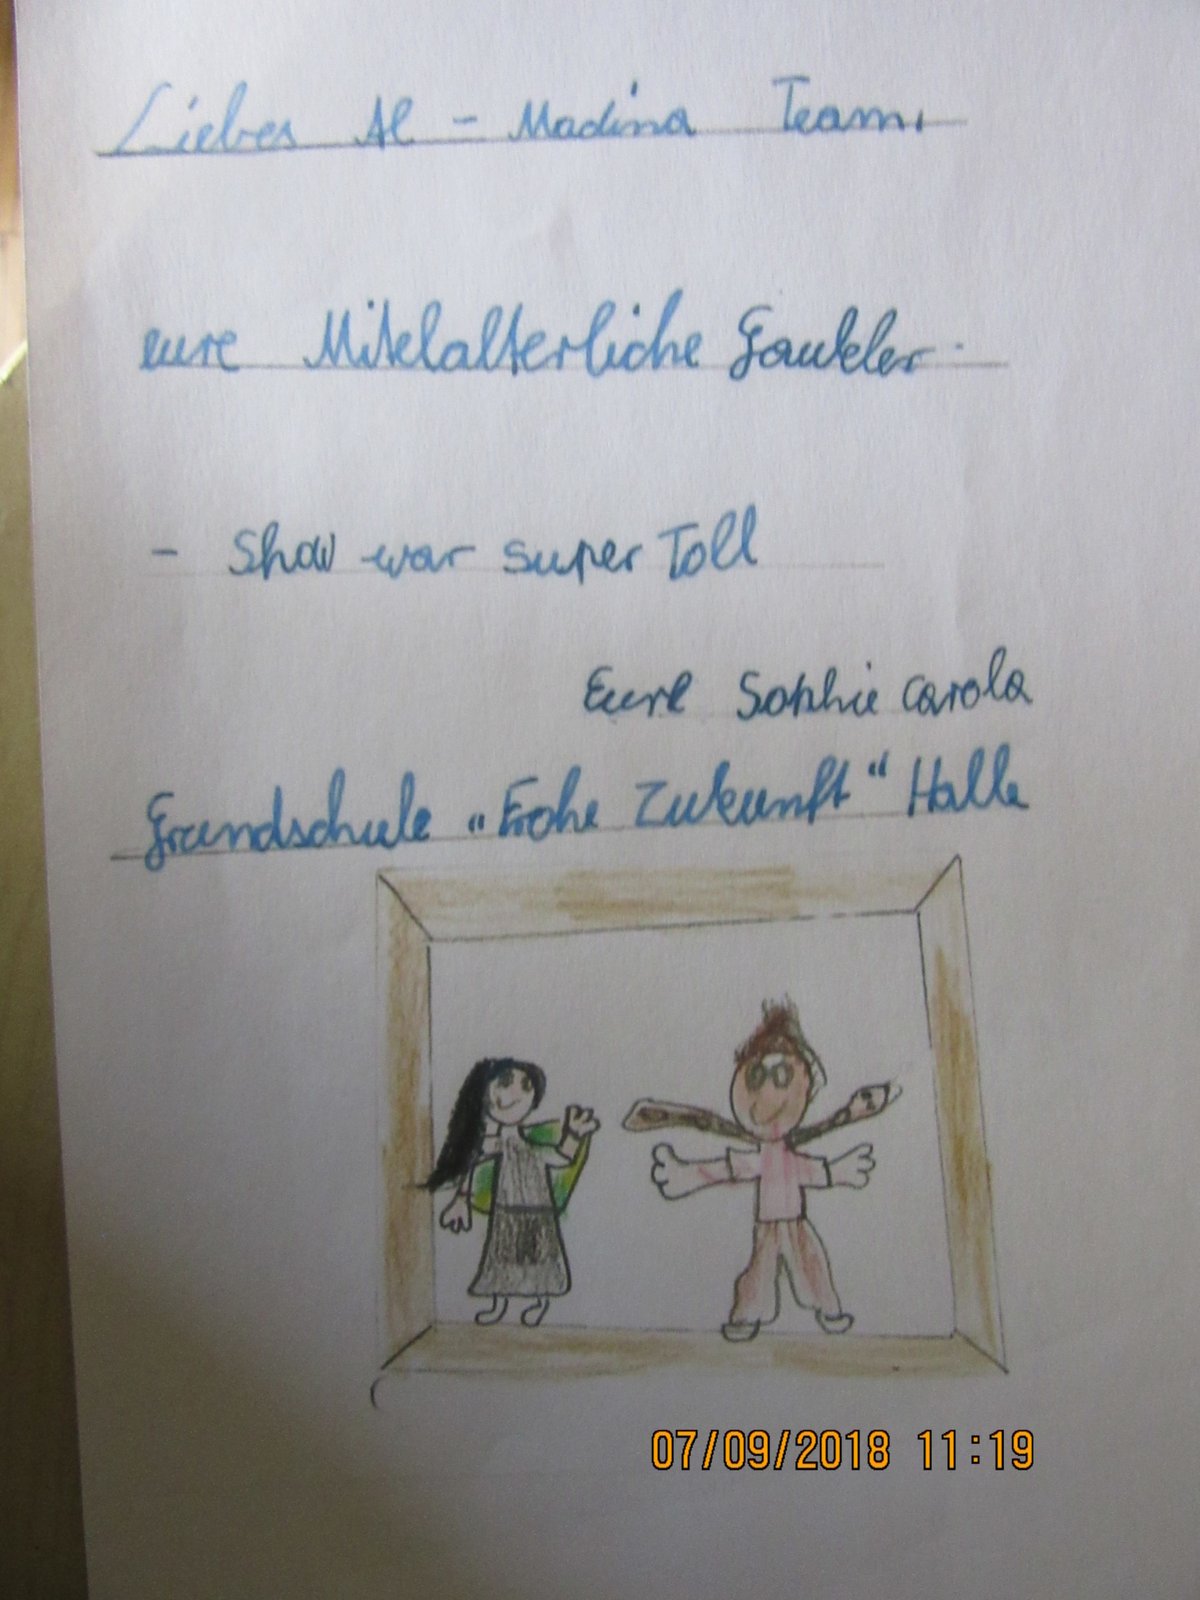 Liebes Al - Madina Team,
eure Mitelalterliche Gaukler -
- Show war super Toll
Eure Sophie Carola
Grundschule „Frohe Zukunft“ Halle
07/09/2018 11:19